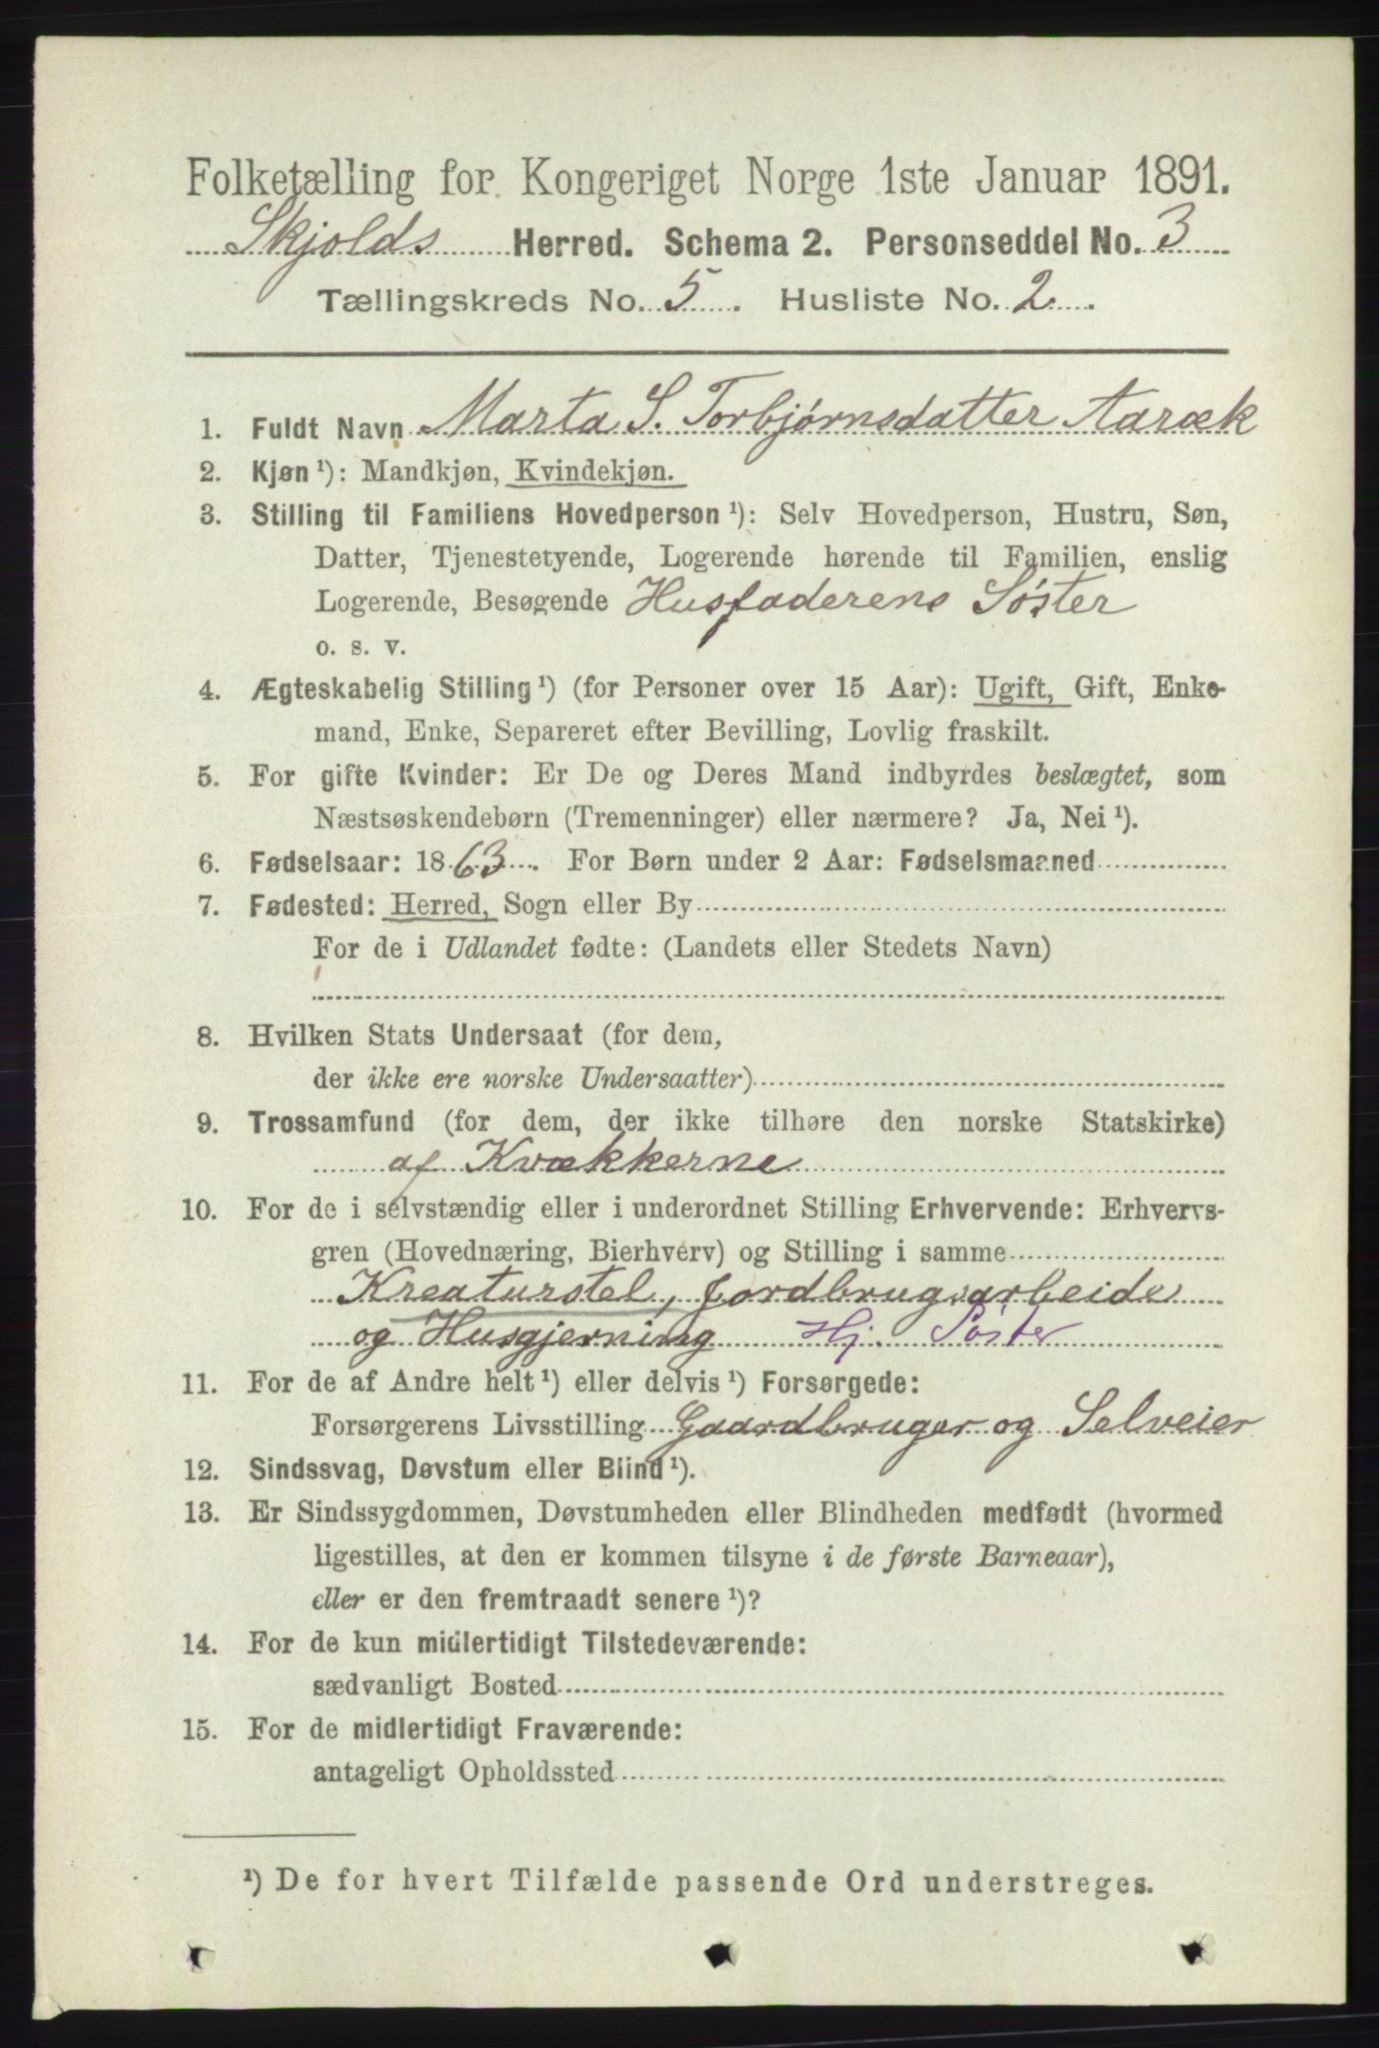 Folketælling for Kongeriget Norge 1ste Januar 1891.
Skjolds Herred. Schema 2. Personseddel No. 3
Tællingskreds No. 5. Husliste No. 2.
1. Fuldt Navn Marta S. Torbjørnsdatter Aaræk
2. Kjøn ¹): Mandkjøn, Kvindekjøn.
3. Stilling til Familiens Hovedperson ¹): Selv Hovedperson, Hustru, Søn,
Datter, Tjenestetyende, Logerende hørende til Familien, enslig
Logerende, Besøgende Husfaderens Søster
o. s. v.
4. Ægteskabelig Stilling ¹) (for Personer over 15 Aar): Ugift, Gift, Enke-
mand, Enke, Separeret efter Bevilling, Lovlig fraskilt.
5. For gifte Kvinder: Er De og Deres Mand indbyrdes beslægtet, som
Næstsøskendebørn (Tremenninger) eller nærmere? Ja, Nei ¹).
6. Fødselsaar: 1863. For Børn under 2 Aar: Fødselsmaaned
7. Fødested: Herred, Sogn eller By
For de i Udlandet fødte: (Landets eller Stedets Navn)
8. Hvilken Stats Undersaat (for dem,
der ikke ere norske Undersaatter)
9. Trossamfund (for dem, der ikke tilhøre den norske Statskirke)
af Kvækkerne
10. For de i selvstændig eller i underordnet Stilling Erhvervende: Erhvervs-
gren (Hovednæring, Bierhverv) og Stilling i samme
Kreaturstel, jordbrugsarbeide
og Husgjerning Hj. Søster
11. For de af Andre helt ¹) eller delvis ¹) Forsørgede:
Forsørgerens Livsstilling Gaardbruger og Selveier
12. Sindssvag, Døvstum eller Blind ¹).
13. Er Sindssygdommen, Døvstumheden eller Blindheden medfødt (hvormed
ligestilles, at den er kommen tilsyne i de første Barneaar),
eller er den fremtraadt senere ¹)?
14. For de kun midlertidigt Tilstedeværende:
sædvanligt Bosted
15. For de midlertidigt Fraværende:
antageligt Opholdssted
¹) De for hvert Tilfælde passende Ord understreges.